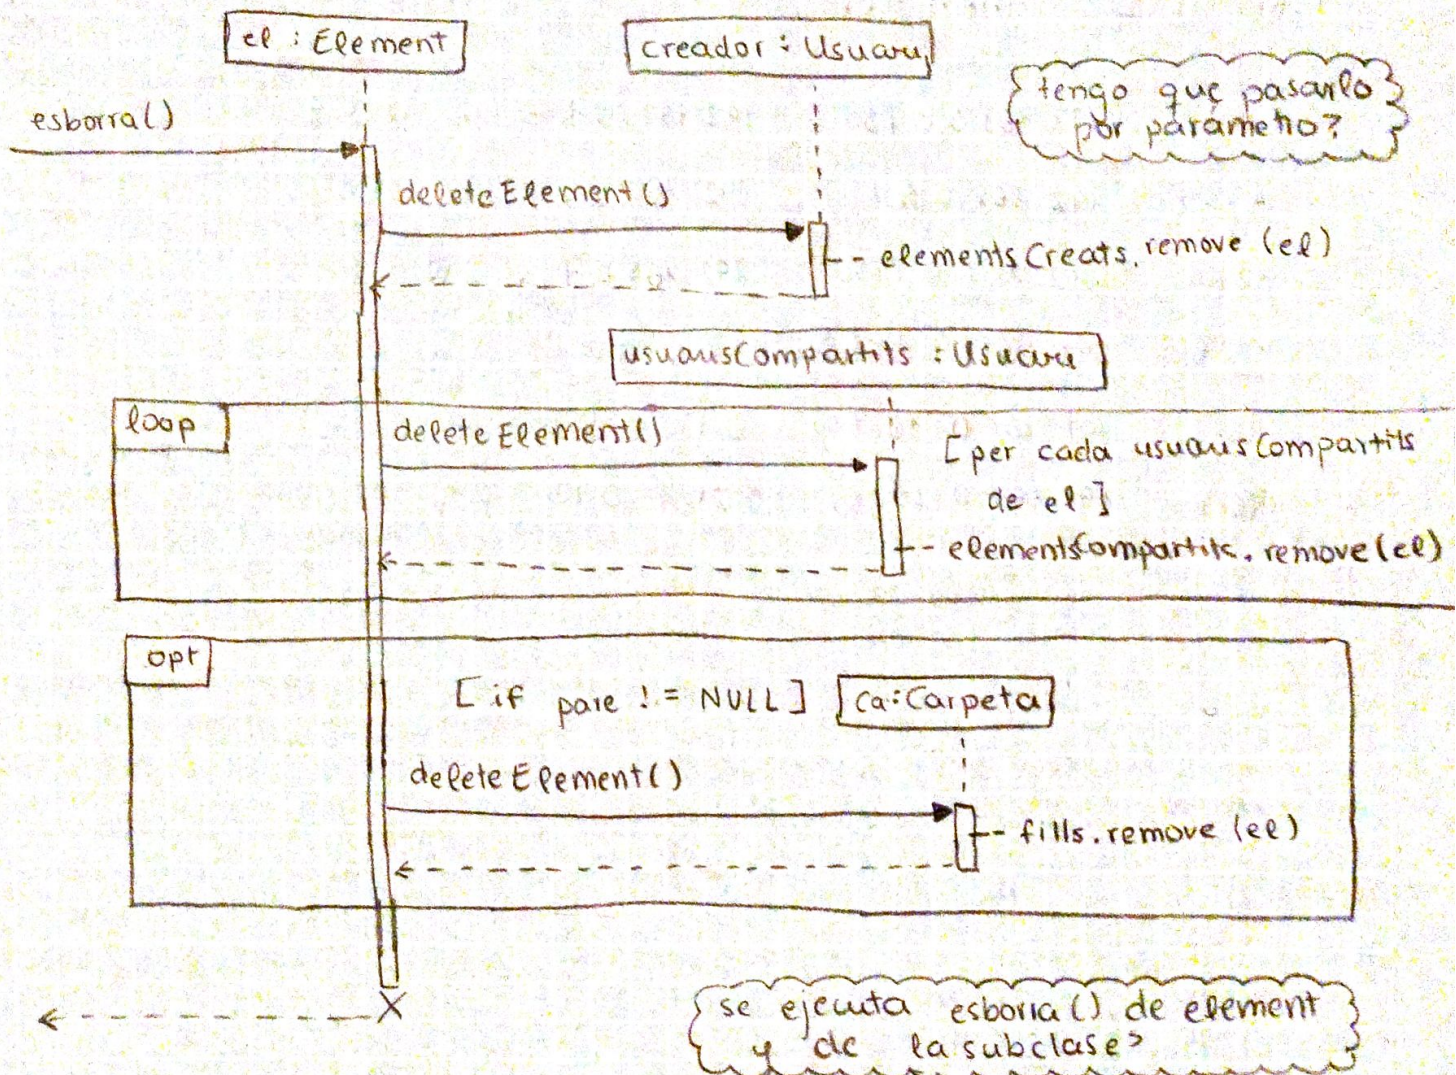 el : Element
creador : Usuari
tengo que pasarlo
por parámetro?
esborra()
deleteElement()
elementsCreats.remove (el)
usuarisCompartits : Usuari
loop
deleteElement()
[per cada usuarisCompartits
de el]
elementsCompartits.remove(el)
opt
[if pare != NULL]
ca:Carpeta
deleteElement()
fills.remove (el)
X
se ejecuta esborra() de element
y de la subclase?